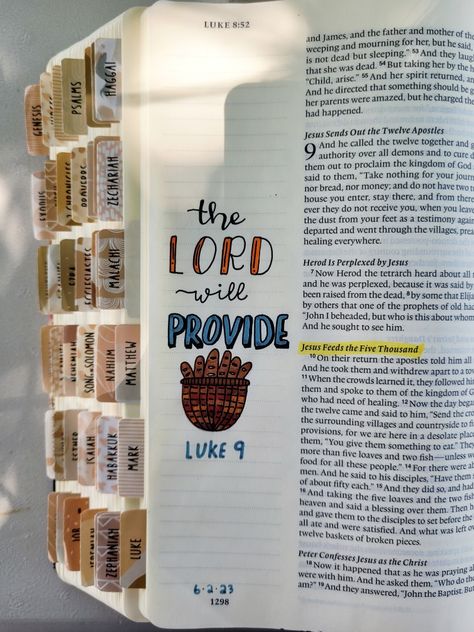 LUKE 8:52
GENESIS
PSALMS
HAGGAI
EXODUS
2 CHRONICLES
PROVERBS
ZECHARIAH
EZRA
ECCLESIASTES
MALACHI
NEHEMIAH
SONG of SOLOMON
NAHUM
MATTHEW
ESTHER
ISAIAH
HABAKKUK
MARK
JOB
JEREMIAH
ZEPHANIAH
LUKE
the
LORD
will
PROVIDE
LUKE 9
6.2.23
1298
and James, and the father and mother of the
weeping and mourning for her, but he said
is not dead but sleeping." 53 And they laug
that she was dead. 54 But taking her by the h
"Child, arise." 55 And her spirit returned, an
And he directed that something should be g
her parents were amazed, but he charged the
had happened.
Jesus Sends Out the Twelve Apostles
9 And he called the twelve together and g
authority over all demons and to cure d
them out to proclaim the kingdom of God
said to them, "Take nothing for your journ
nor bread, nor money; and do not have two
house you enter, stay there, and from there
ever they do not receive you, when you leave
the dust from your feet as a testimony again
departed and went through the villages, prea
healing everywhere.
Herod Is Perplexed by Jesus
7 Now Herod the tetrarch heard about all
and he was perplexed, because it was said by
been raised from the dead, 8 by some that Elija
by others that one of the prophets of old had
"John I beheaded, but who is this about whom
And he sought to see him.
Jesus Feeds the Five Thousand
10 On their return the apostles told him all
And he took them and withdrew apart to a tow
11 When the crowds learned it, they followed him
them and spoke to them of the kingdom of G
who had need of healing. 12 Now the day began
the twelve came and said to him, "Send the
the surrounding villages and countryside to fi
provisions, for we are here in a desolate place
them, "You give them something to eat." They
more than five loaves and two fish—unless w
food for all these people." 14 For there were a
men. And he said to his disciples, "Have them
of about fifty each." 15 And they did so, and had
16 And taking the five loaves and the two fish
heaven and said a blessing over them. Then h
and gave them to the disciples to set before the
all ate and were satisfied. And what was left ov
twelve baskets of broken pieces.
Peter Confesses Jesus as the Christ
18 Now it happened that as he was praying al
were with him. And he asked them, "Who do the
am?" 19 And they answered, "John the Baptist. But